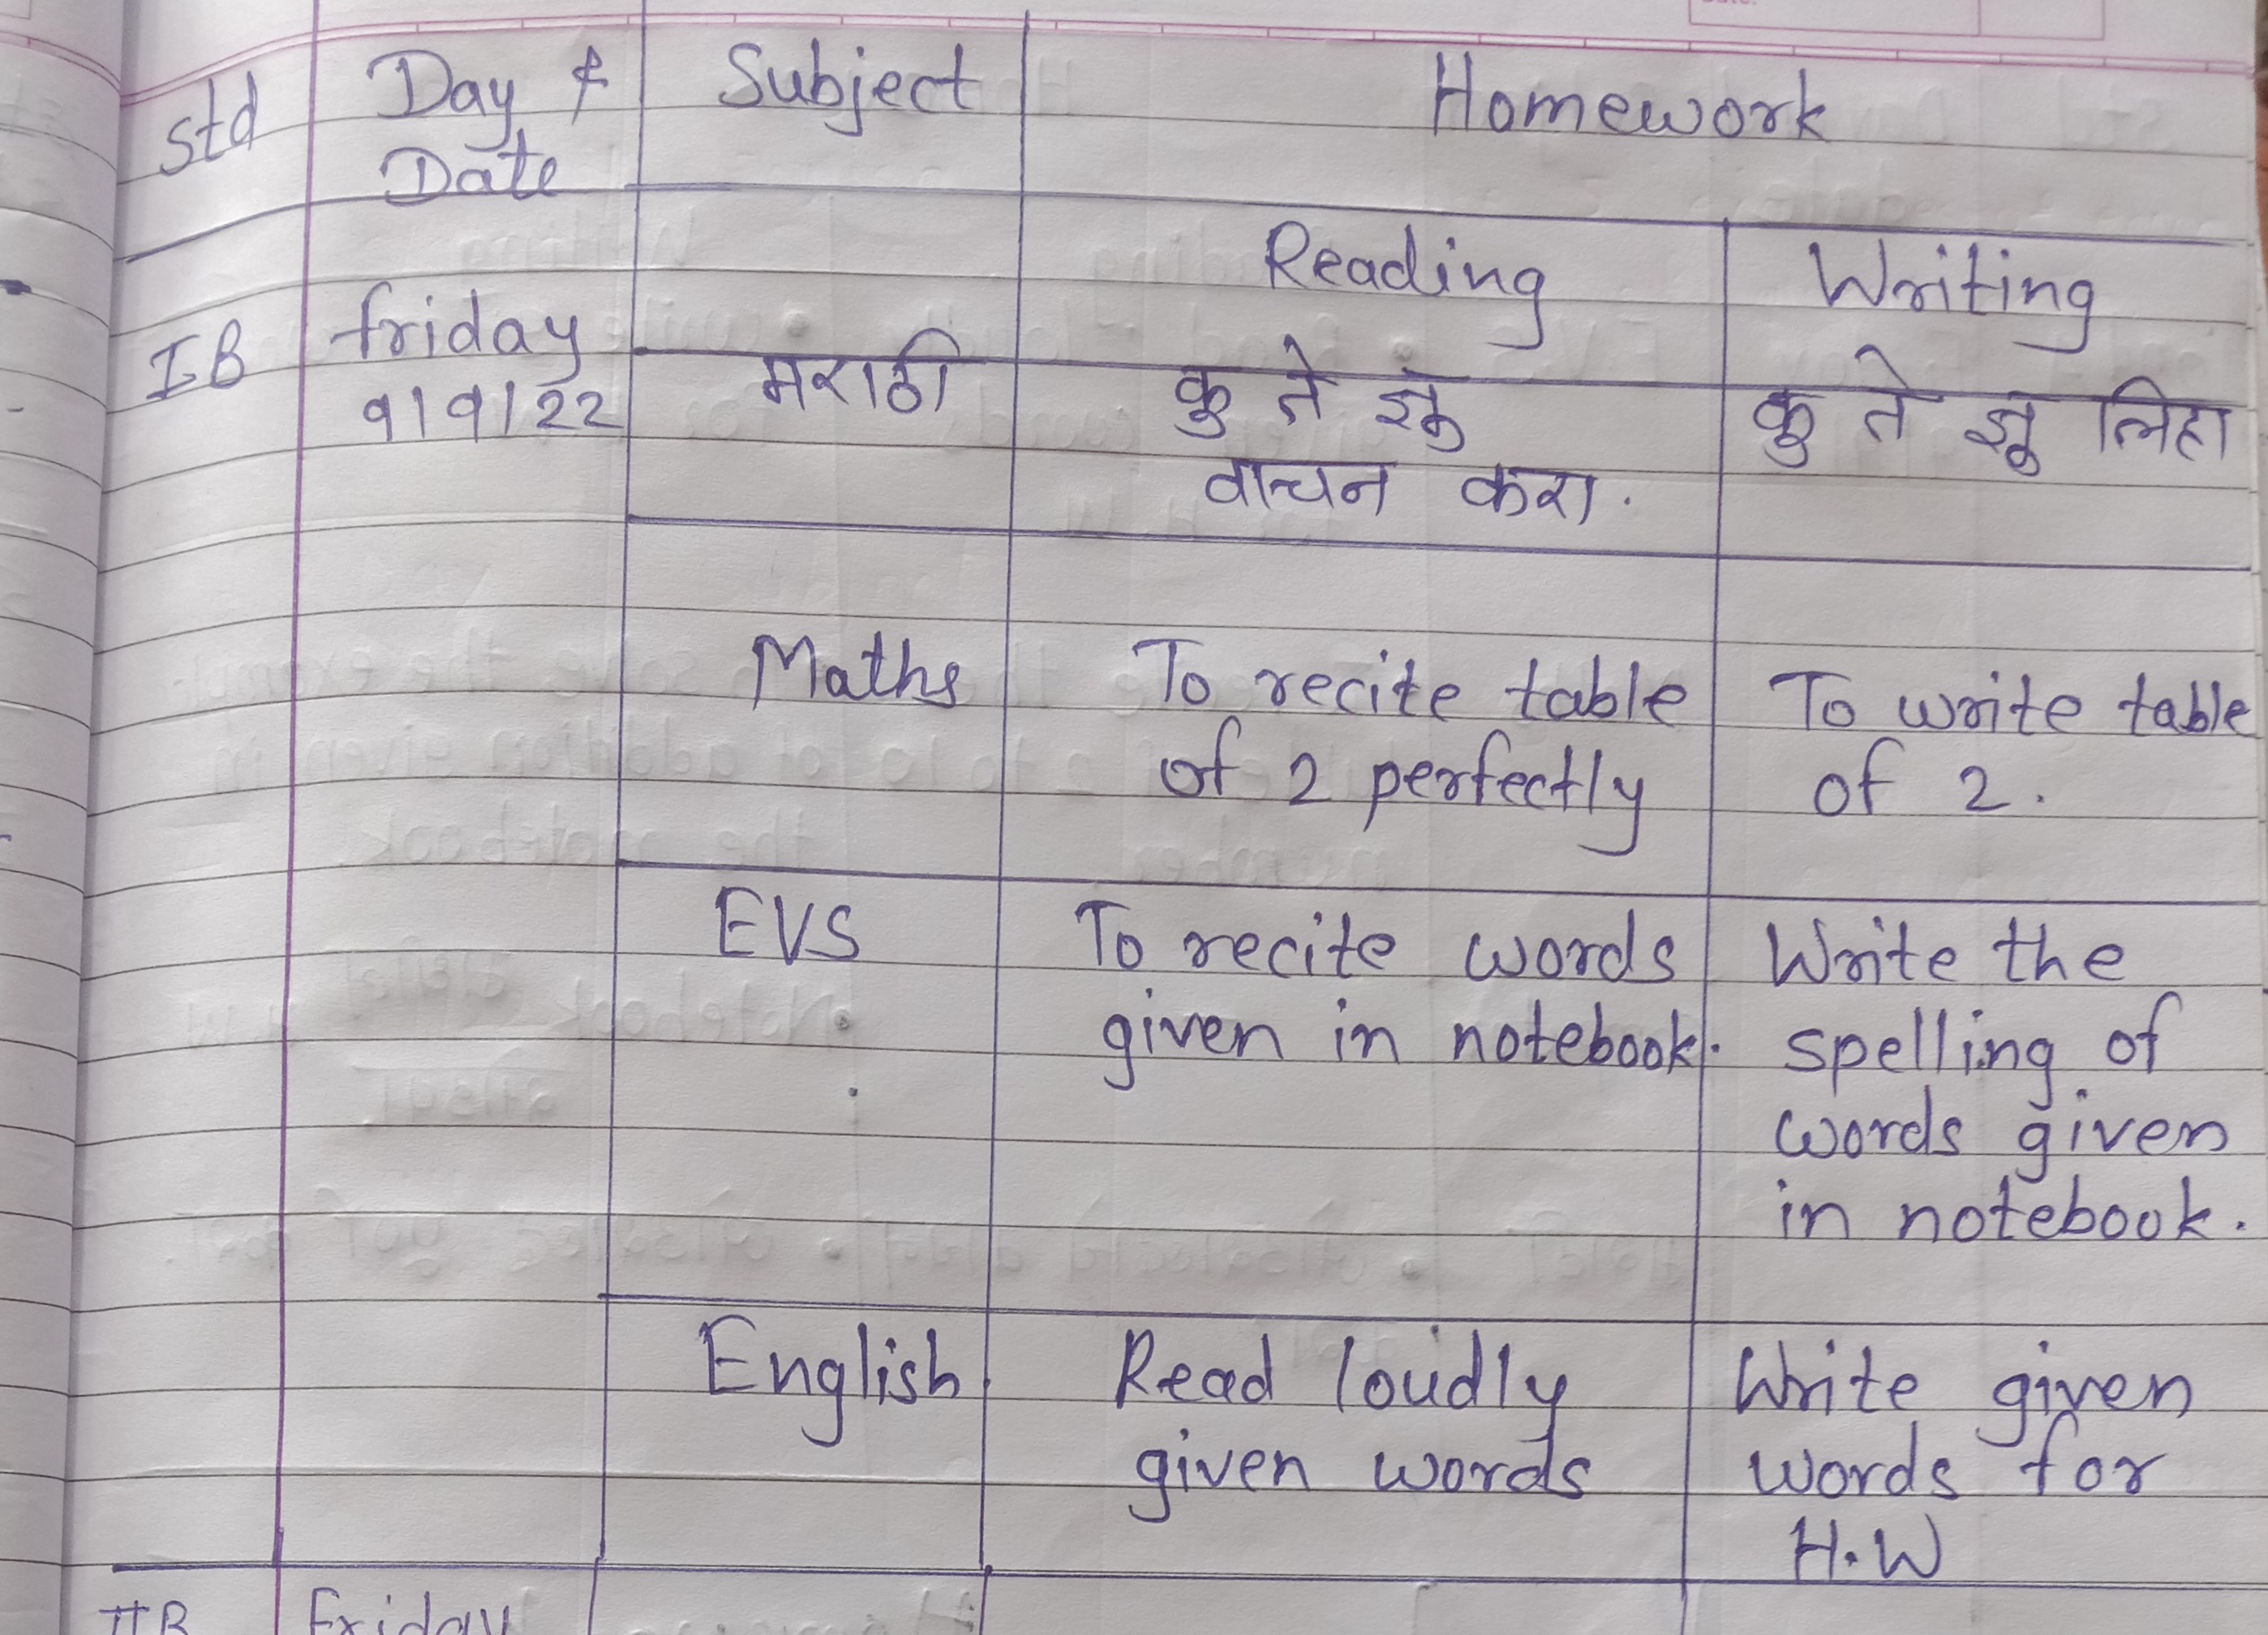 Std Day & Subject Homework
Date
Reading Writing
IB friday मराठी कु ते झु कु ते झू लिहा
9/9/22 वाचन करा.
Maths To recite table To write table
of 2 perfectly of 2.
EVS To recite words Write the
given in notebook. spelling of
words given
in notebook.
English Read loudly Write given
given words words for
H.W
IIB Friday